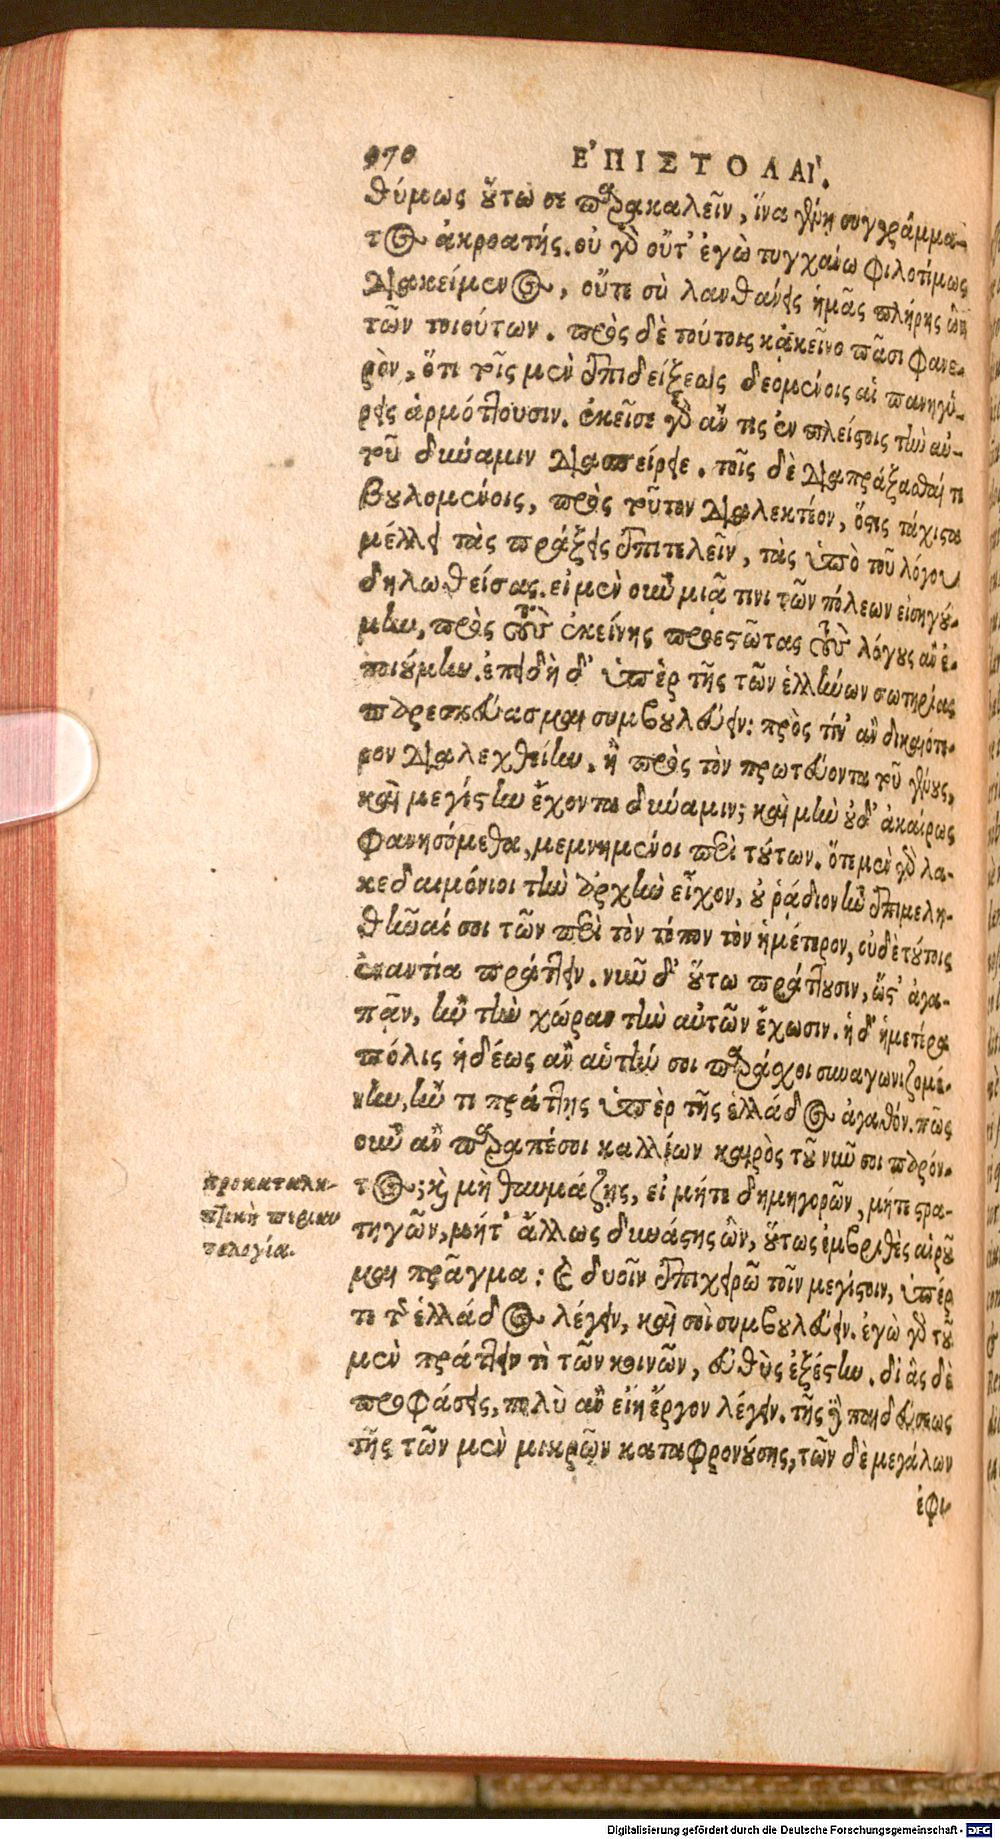 970 ἘΠΙΣΤΟΛΑΊ.
θύμως οὕτω σε παρακαλεῖν, ἵνα γένῃ συγγράμμα-
τος ἀκροατής. οὐ γὰρ οὔτ' ἐγὼ τυγχάνω φιλοτίμως
διακείμενος, οὔτε σὺ λανθάνεις ἡμᾶς πλήρης ὢν
τῶν τοιούτων. πρὸς δὲ τούτοις κἀκεῖνο πᾶσι φανε-
ρὸν, ὅτι τοῖς μὲν ἐπιδείξεως δεομένοις αἱ πανηγύ-
ρεις ἁρμόττουσιν. ἐκεῖσε γὰρ ἄν τις ἐν πλείστοις τὴν αὑ-
τοῦ δύναμιν διασπείρειε. τοῖς δὲ διαπράξασθαί τι
βουλομένοις, πρὸς τοῦτον διαλεκτέον, ὅστις τάχιστα
μέλλει τὰς πράξεις ἐπιτελεῖν, τὰς ὑπὸ τοῦ λόγου
δηλωθείσας. εἰ μὲν οὖν μιᾷ τινι τῶν πόλεων εἰσηγού-
μην, πρὸς τοὺς ἐκείνης προεστῶτας τοὺς λόγους ἂν ἐ-
ποιούμην. ἐπειδὴ δ' ὑπὲρ τῆς τῶν ἑλλήνων σωτηρίας
παρεσκεύασμαι συμβουλεύειν: πρὸς τίν' ἂν δικαιότε-
ρον διαλεχθείην, ἢ πρὸς τὸν πρωτεύοντα τοῦ γένους,
καὶ μεγίστην ἔχοντα δύναμιν; καὶ μὴν οὐδ' ἀκαίρως
φανησόμεθα, μεμνημένοι περὶ τούτων. ὅτε μὲν γὰρ λα-
κεδαιμόνιοι τὴν ἀρχὴν εἶχον, οὐ ῥᾴδιον ἦν ἐπιμελη-
θῆναί σοι τῶν περὶ τὸν τόπον τὸν ἡμέτερον, οὐδὲ τούτοις
ἐναντία πράττειν. νῦν δ' οὕτω πράττουσιν, ὥστ' ἀγα-
πᾶν, ἢν τὴν χώραν τὴν αὑτῶν ἔχωσιν. ἡ δ' ἡμετέρα
πόλις ἡδέως ἂν αὑτήν σοι παράσχοι συναγωνιζομέ-
νην, ἤν τι πράττῃς ὑπὲρ τῆς ἑλλάδος ἀγαθόν. πῶς
οὖν ἂν παραπέσοι καλλίων καιρὸς τοῦ νῦν σοι παρόν-
τος; καὶ μὴ θαυμάζῃς, εἰ μήτε δημηγορῶν, μήτε στρα-
τηγῶν, μήτ' ἄλλως δυνάστης ὢν, οὕτως ἐμβριθὲς αἱροῦ
μαι πρᾶγμα: καὶ δυοῖν ἐπιχειρῶ τοῖν μεγίστοιν, ὑπέρ
τε τῆς ἑλλάδος λέγειν, καὶ σοὶ συμβουλεύειν. ἐγὼ γὰρ τοῦ
μὲν πράττειν τὶ τῶν κοινῶν, εὐθὺς ἐξέστην. δι' ἃς δὲ
προφάσεις, πολὺ ἂν εἴη ἔργον λέγειν. τῆς δὲ παιδεύσεως
τῆς τῶν μὲν μικρῶν καταφρονούσης, τῶν δὲ μεγάλων
ἐφι-
προκαταλη-
πτικὴ περιαυ
τολογία.
Digitalisierung gefördert durch die Deutsche Forschungsgemeinschaft - DFG